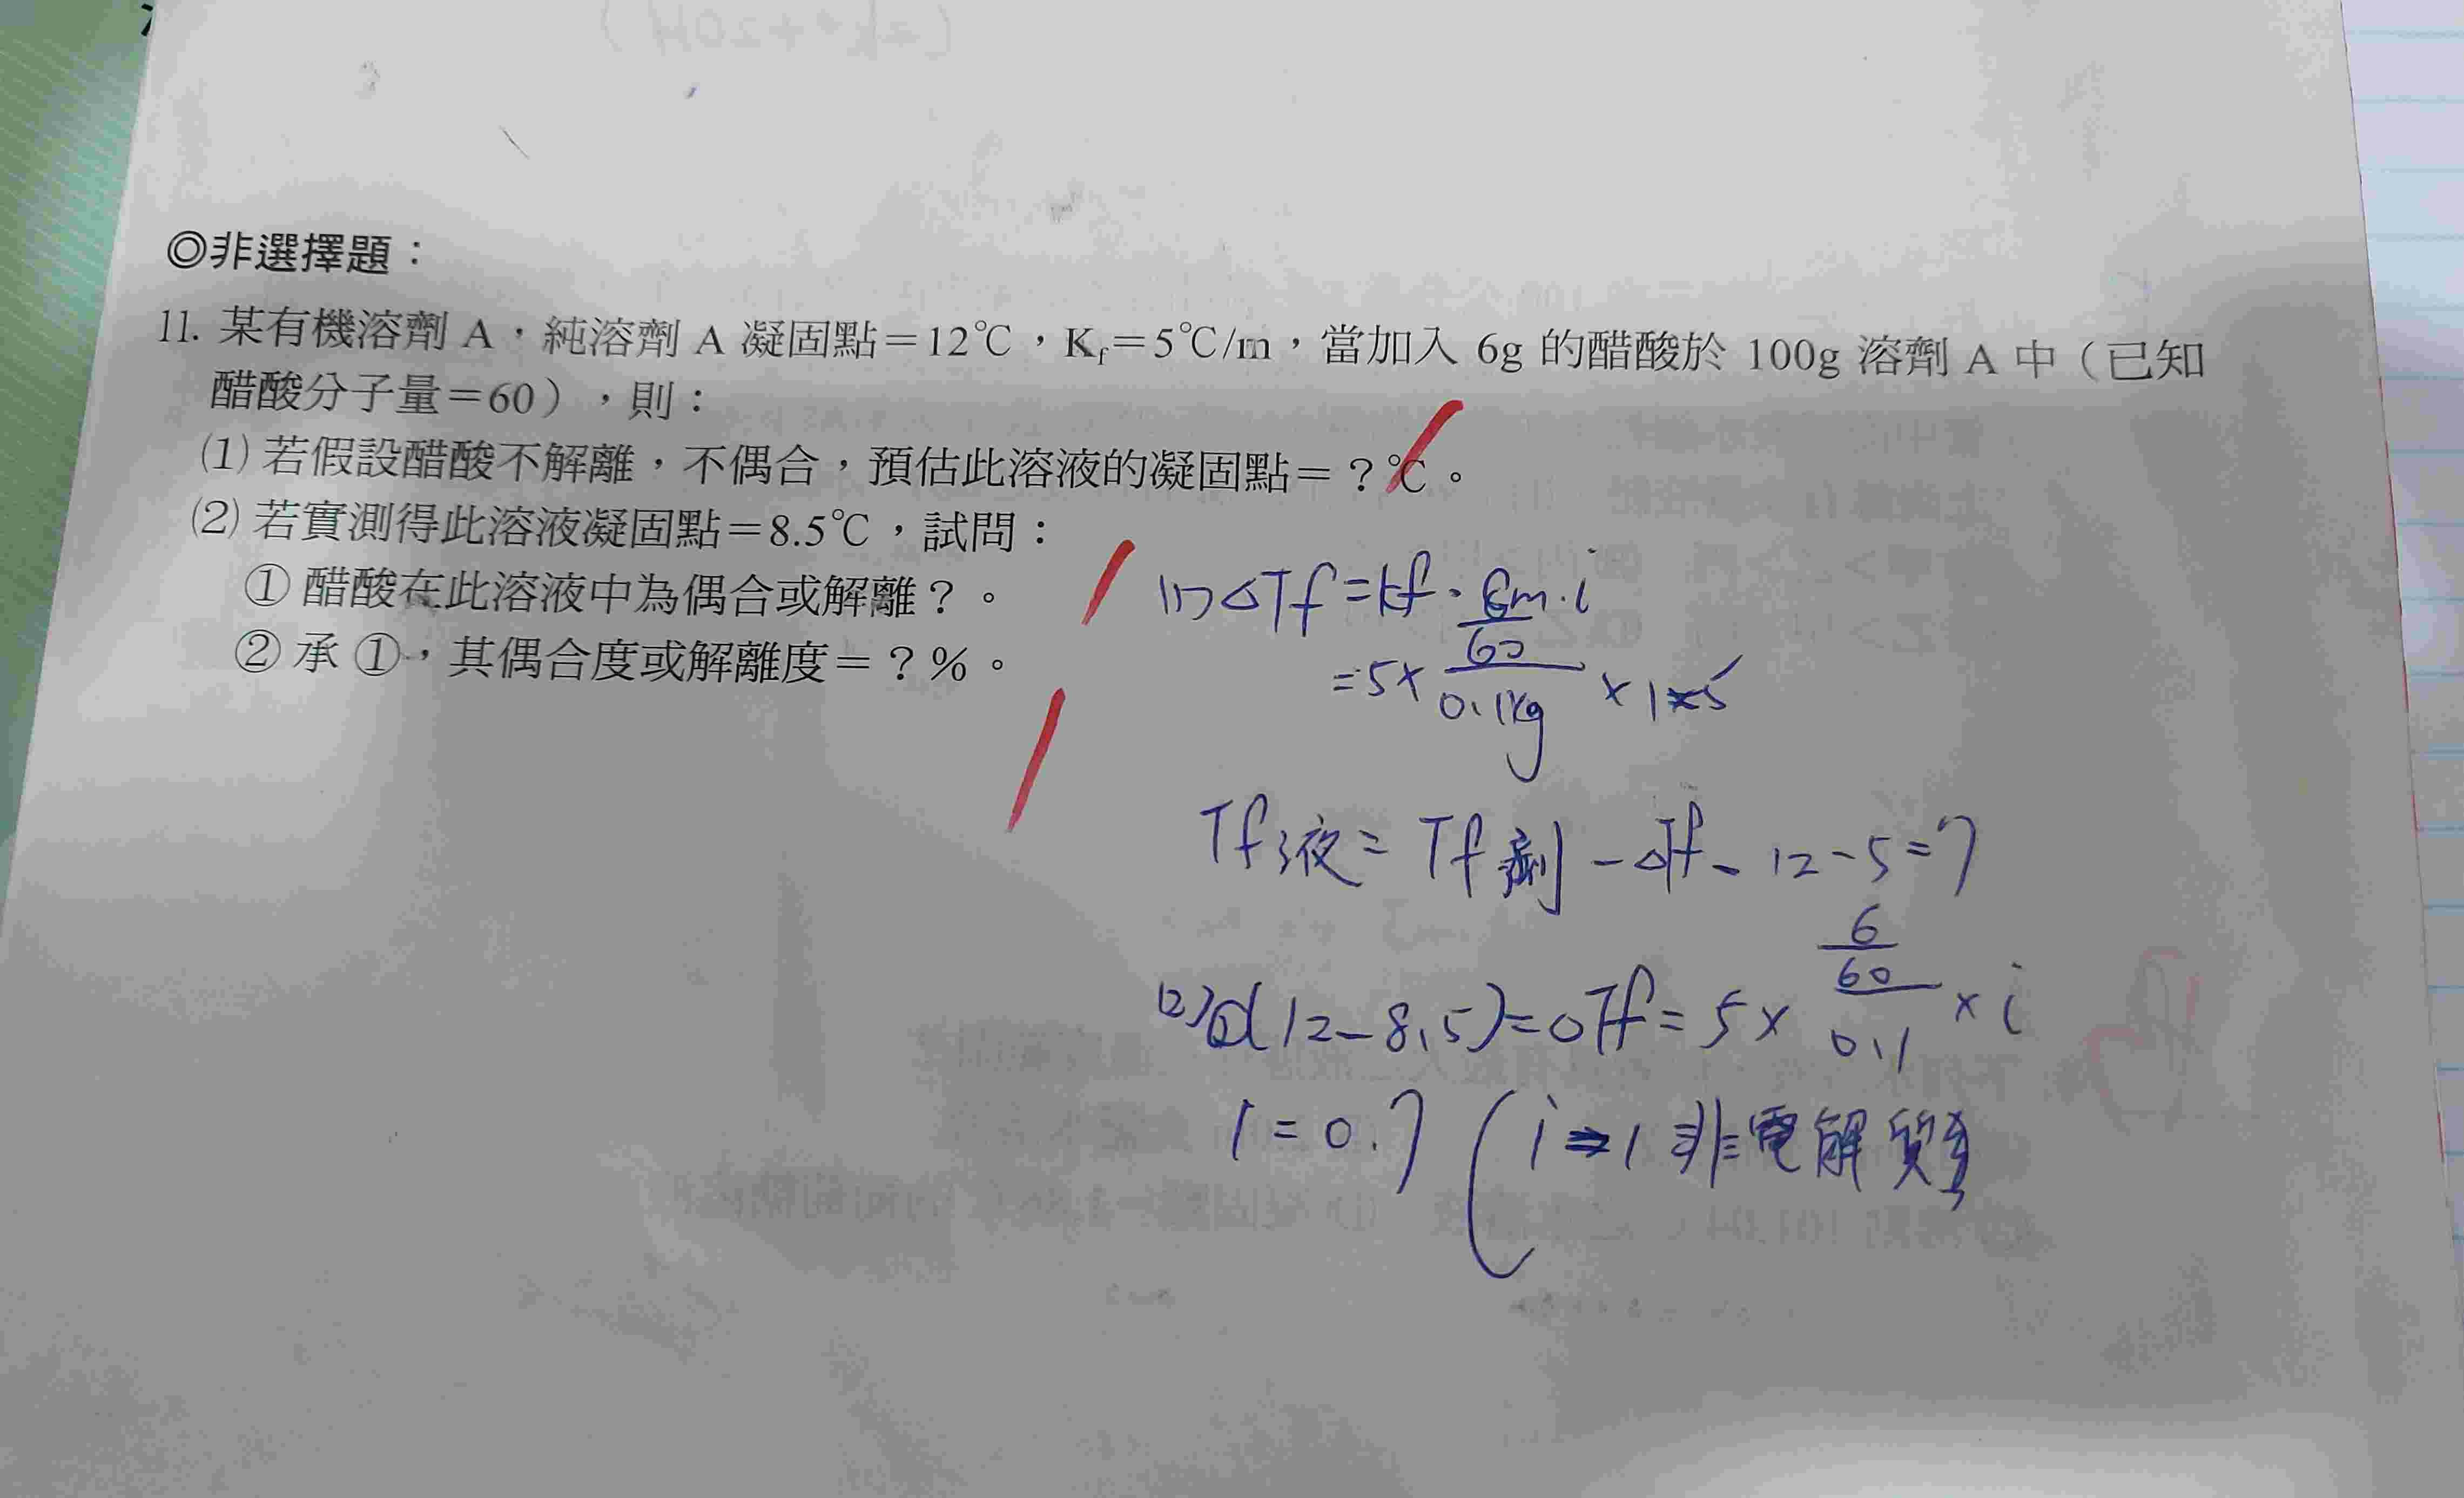 ◎非選擇題：
11. 某有機溶劑 A，純溶劑 A 凝固點＝12℃，Kf＝5℃/m，當加入 6g 的醋酸於 100g 溶劑 A 中（已知
醋酸分子量＝60），則：
(1) 若假設醋酸不解離，不偶合，預估此溶液的凝固點＝？℃。
(2) 若實測得此溶液凝固點＝8.5℃，試問：
① 醋酸在此溶液中為偶合或解離？。
② 承 ①，其偶合度或解離度＝？%。
(1) ΔTf = kf · Cm · i
= 5 × 6/60 / 0.1kg × 1 = 5
Tf液 = Tf劑 - ΔTf = 12 - 5 = 7
(2) ① (12 - 8.5) = ΔTf = 5 × 6/60 / 0.1 × i
i = 0.7 ( i = 1 非電解質